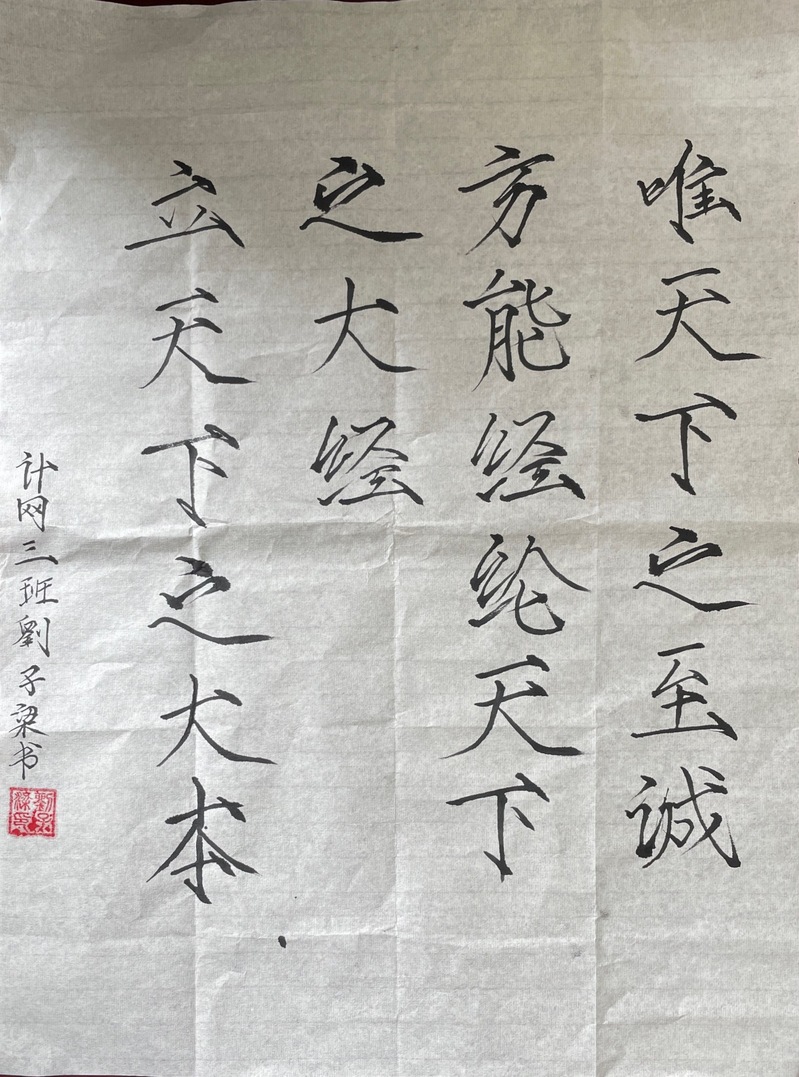 唯天下之至诚
方能经纶天下
之大经
立天下之大本
计网三班劉子梁书